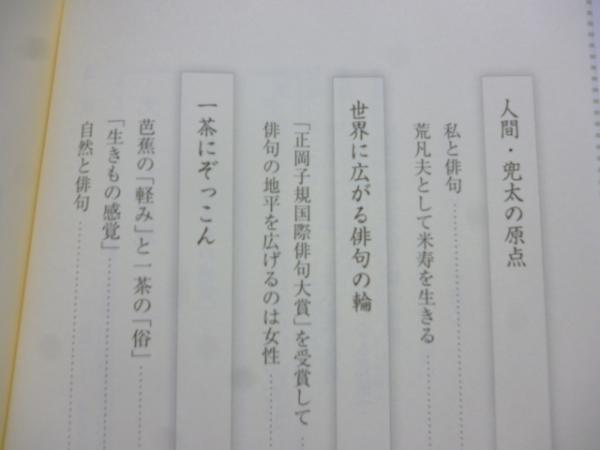 人間・兜太の原点
私と俳句
荒凡夫として米寿を生きる
世界に広がる俳句の輪
「正岡子規国際俳句大賞」を受賞して
俳句の地平を広げるのは女性
一茶にぞっこん
芭蕉の「軽み」と一茶の「俗」
「生きもの感覚」
自然と俳句